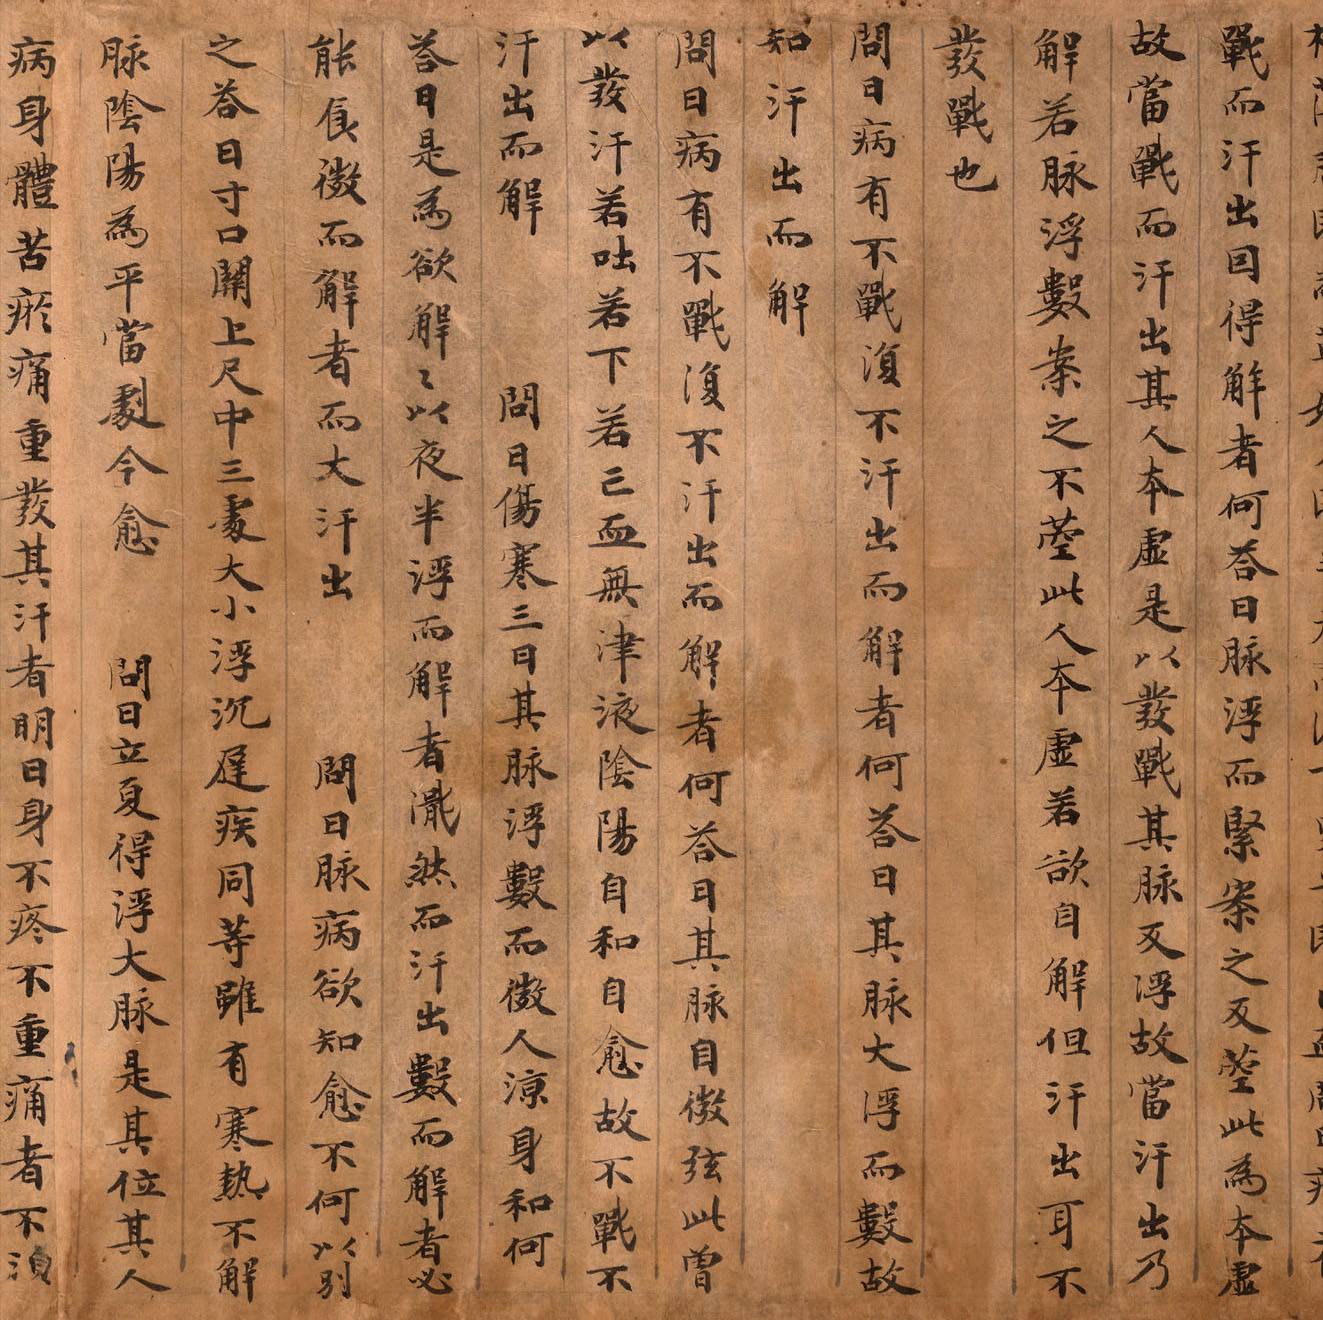 戰而汗出因得解者何荅曰脉浮而緊案之反䒷此為本虛
故當戰而汗出其人本虛是以發戰其脉反浮故當汗出乃
解若脉浮數案之不䒷此人本虛若欲自解但汗出耳不
發戰也
問曰病有不戰復不汗出而解者何荅曰其脉大浮而數故
知汗出而解
問曰病有不戰復不汗出而解者何荅曰其脉自微弦此曾
以發汗若吐若下若亡血無津液陰陽自和自愈故不戰不
汗出而解　問曰傷寒三日其脉浮數而微人涼身和何
荅曰是為欲解〻以夜半浮而解者濈然而汗出數而解者必
能食微而解者而大汗出　問曰脉病欲知愈不何以別
之荅曰寸口關上尺中三處大小浮沉遲疾同等雖有寒熱不解
脉陰陽為平當劇今愈　問曰立夏得浮大脉是其位其人
病身體苦瘀痛重發其汗者明日身不疼不重痛者不須